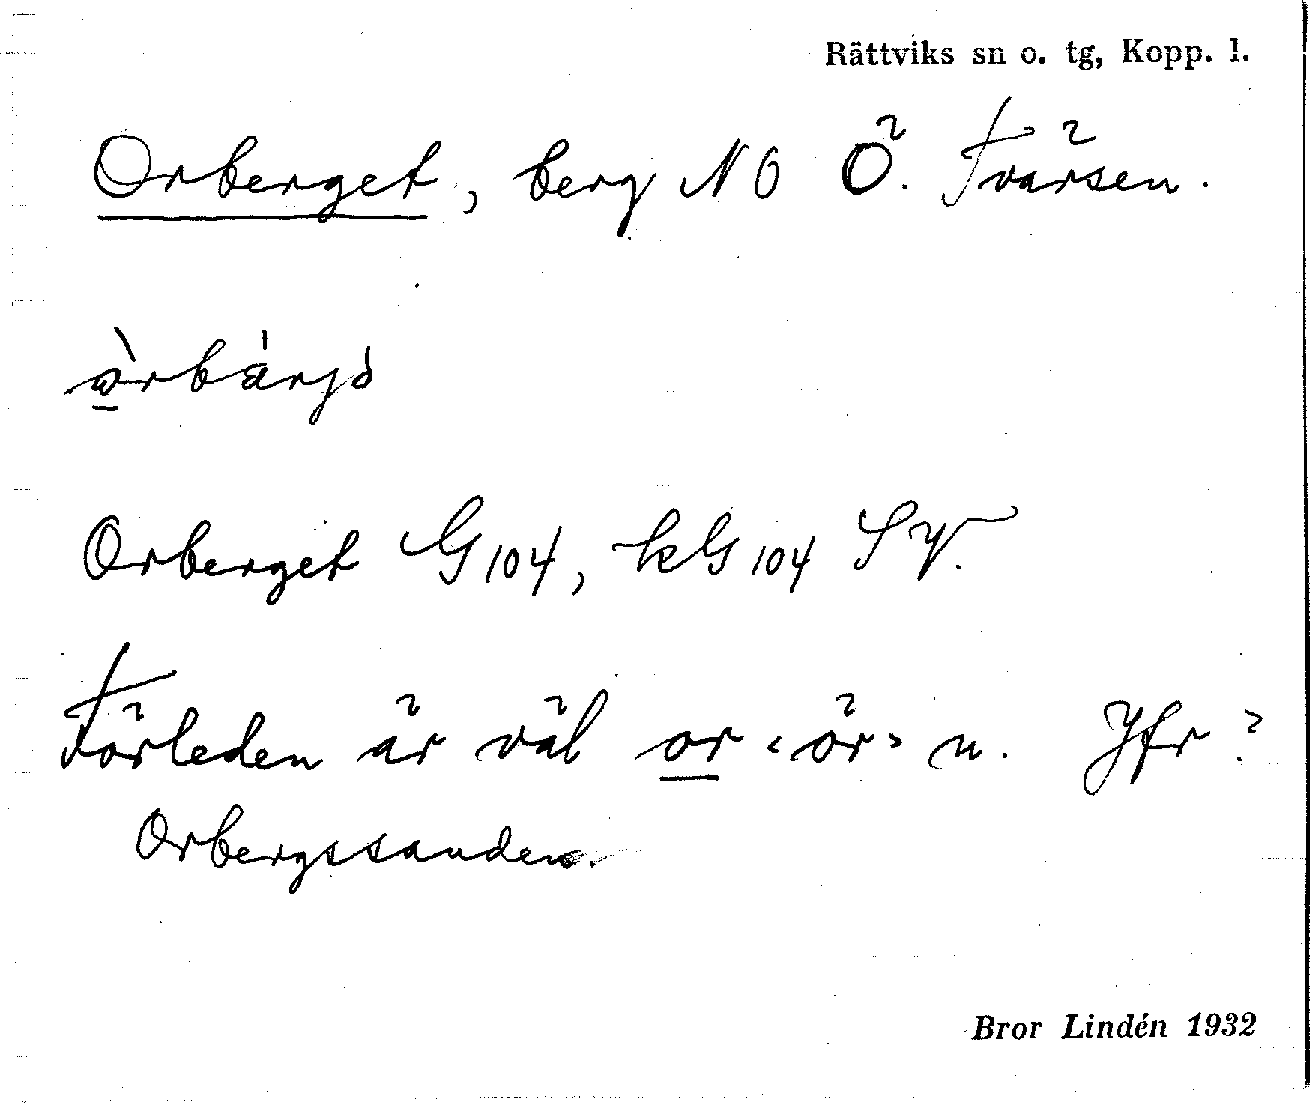 Rättviks sn o. tg, Kopp. l.
Orberget, berg NO Ö. Tvärsen.
Orberget G104, kG104 SV.
Förleden är väl or ‹ör› n. Jfr?
Orbergssanden.
Bror Lindén 1932